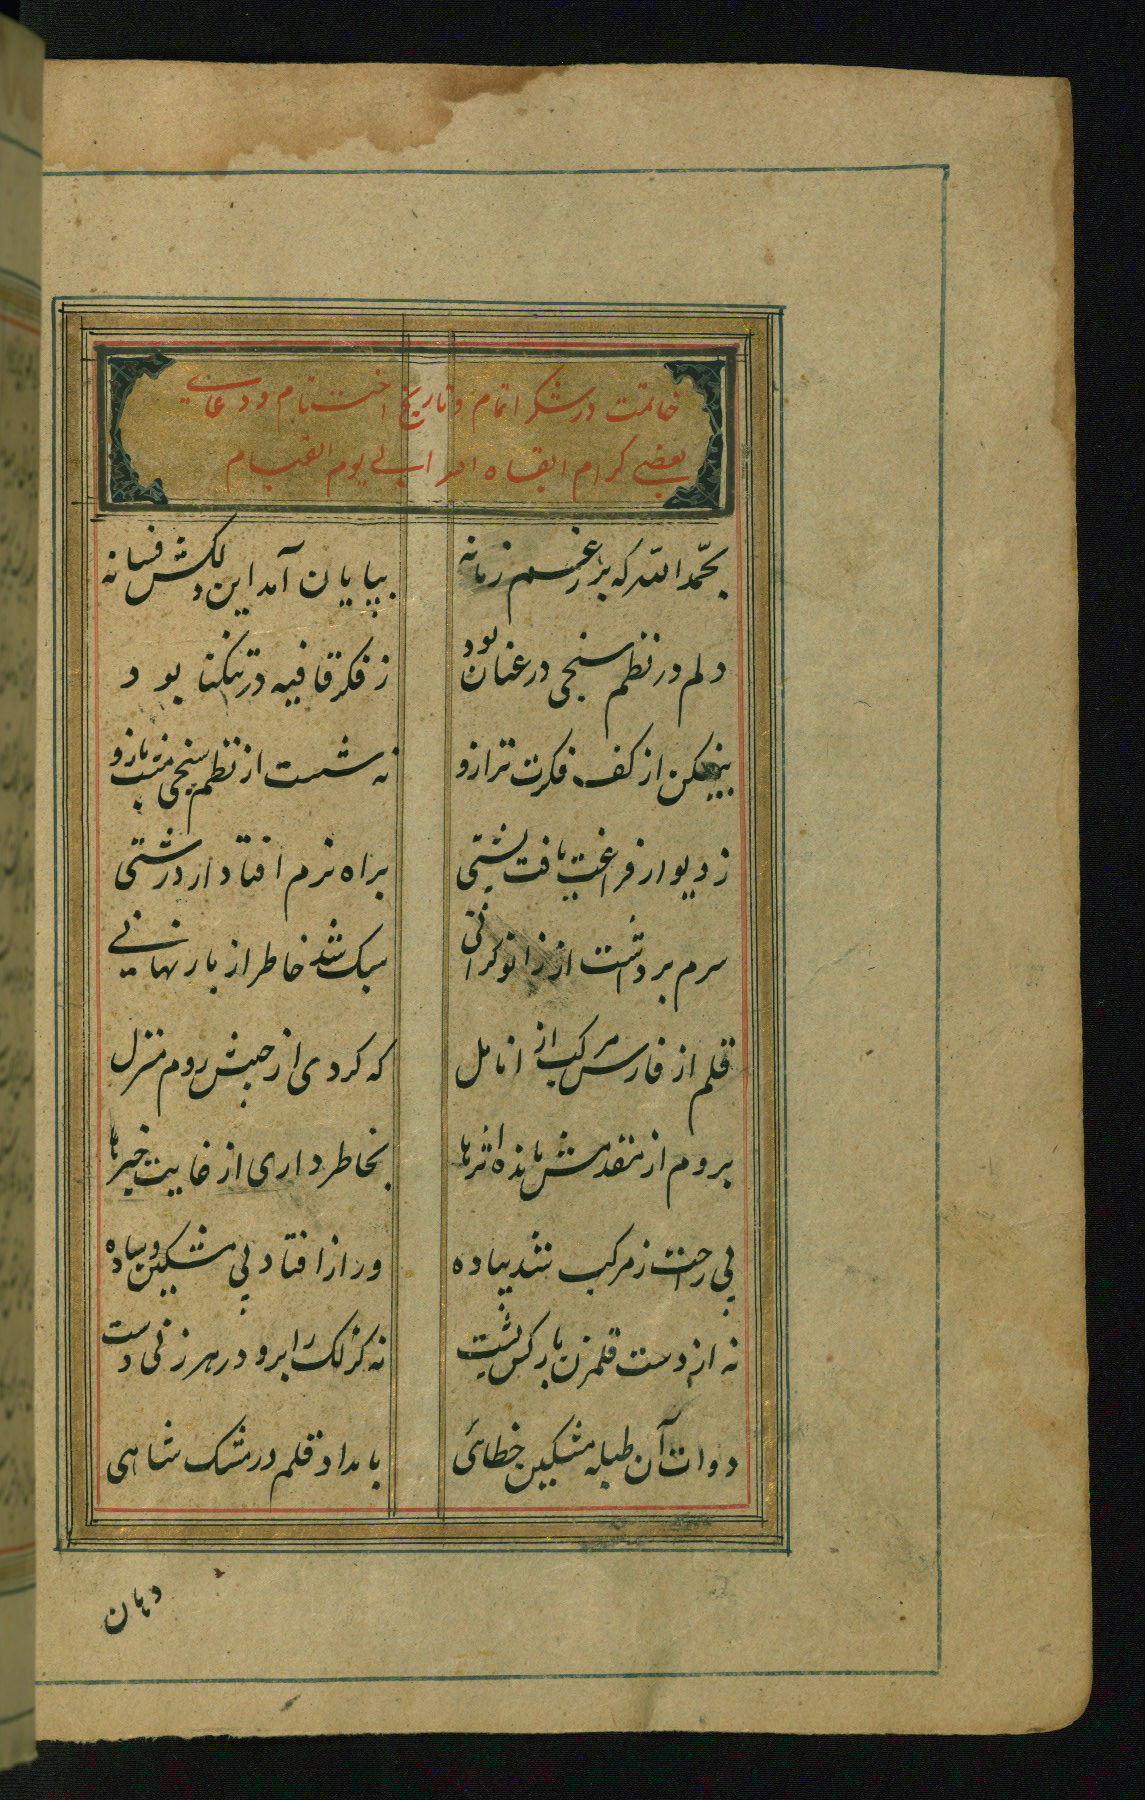 خاتمت در شکر اتمام و تاریخ اختتام و دعای
بعضی کرام ابقاه الله الی یوم القیام
بحمد الله که بر رغم زمانه بپایان آمد این دلکش فسانه
دلم در نظم سنجی در عنان بود ز فکر قافیه در تنکنا بود
بیفکن از کف فکرت ترازو نه شست از نظم سنجی بازو
ز دیوار فراغت یافت پشتی براه نرم افتاد از درشتی
سرم برداشت از زانو کرانی سبک شد خاطر از بار نهانی
قلم از فارس مرکب از انامل که کردی از حبش روم منزل
بروم از مقدمش مانده اثرها بخاطر داری از غایت خبرها
پی راحت ز مرکب شد پیاده و راز افتاد پی مشکین وساده
نه از دست قلمزن بارکش پشت نه کزلک را برو در هر زنی دست
دوات آن طبله مشکین خطائی بامداد قلم در مشک شاهی
دهان